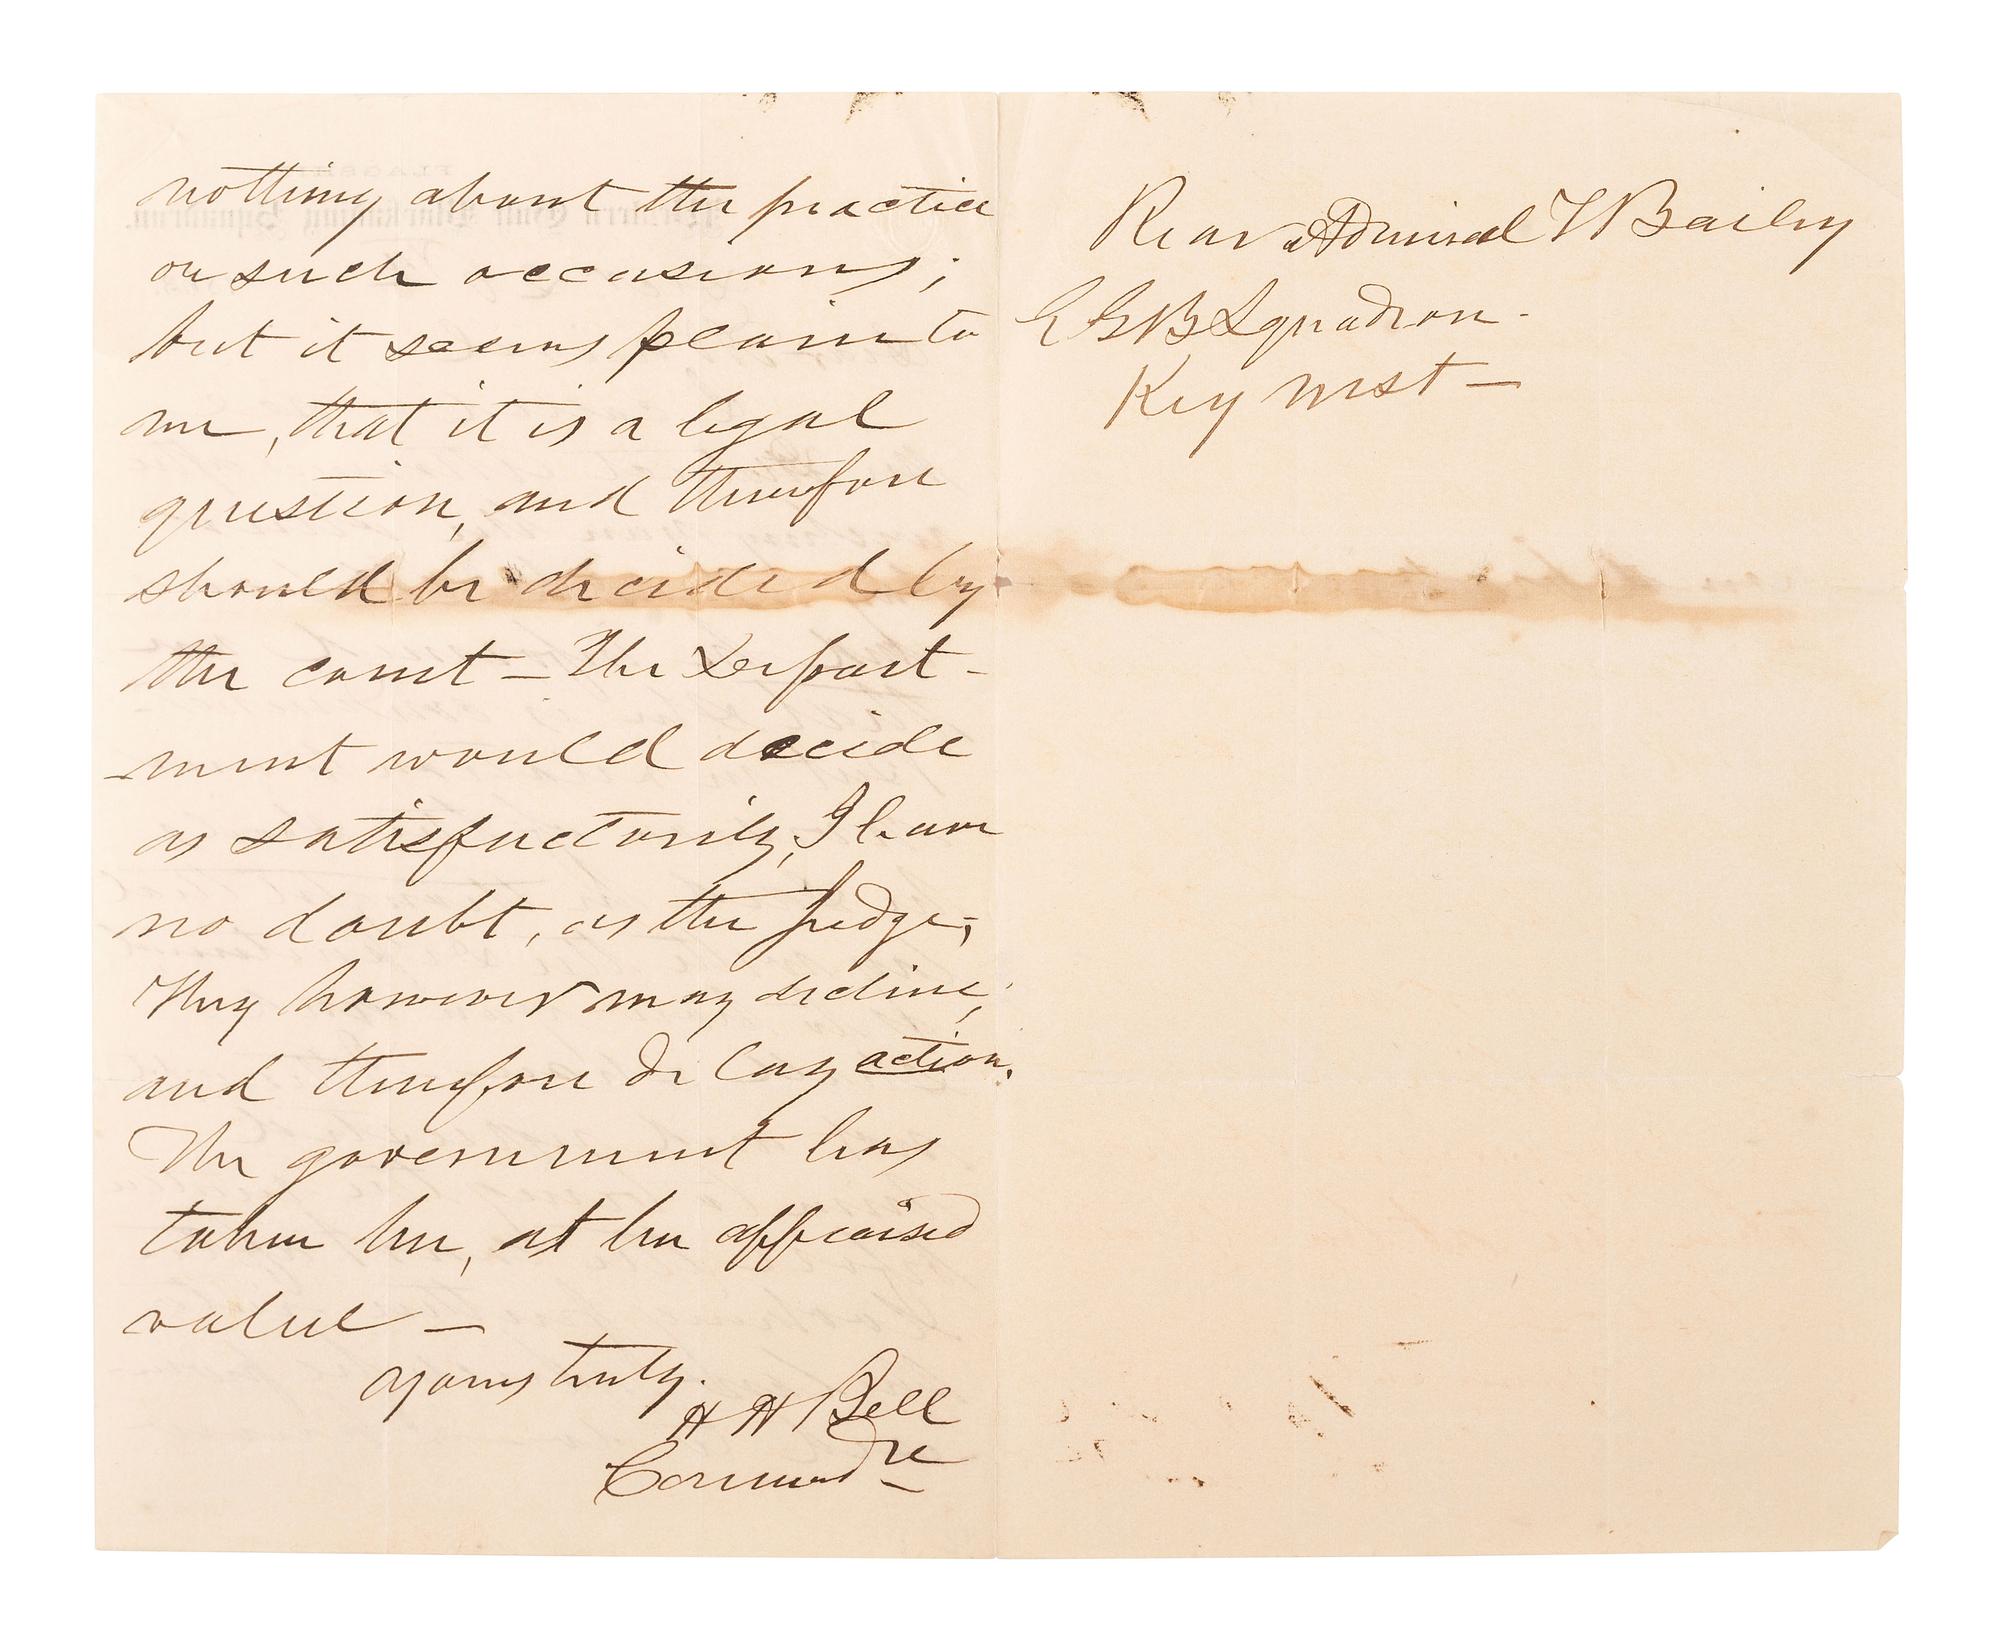 nothing about the practice
on such occasions;
but it seems plain to
me, that it is a legal
question, and therefore
should be decided by
the court – The Depart-
-ment would decide
as satisfactorily, I have
no doubt, as the Judge;
They however may decline;
and therefore delay action.
The government has
taken her, at her appraised
value –
yours truly.
H H Bell
Commodre
Rear Admiral T Bailey
E G B Squadron.
Key West –